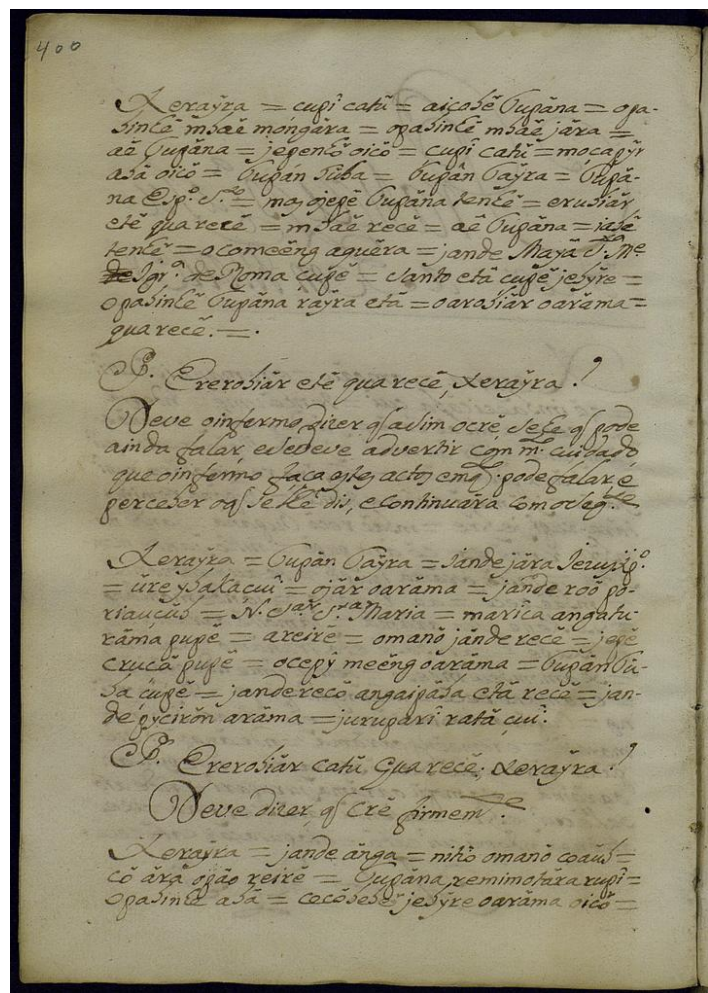 400
Xeraÿra = cupî catû = aicobê Tupãna = opa-
binhê mbaê mongâra = opabinhê mbaê jâra =
aê Tupãna = jepenhõ oicô = cupî catû = moçapÿr
abâ oicô = Tupãn Tûba = Tupãn Taÿra = Tupã-
na Esp.º S.to = maj ojepê Tupãna tenhê = erubiâr
etê qua recê = mbaê recê = aê Tupãna = iabê
tenhê = o comeẽng aguêra = jande Mayã S.ta M.e
Igr.ª de Roma cupê = Santo etâ cupê jebÿre =
opabinhê Tupãna raÿra etâ = oarobiâr oarãma =
qua recê. = .
P. Ererobiâr etê qua recê, Xeraÿra ?
Deve o infermo dizer q̃ assim o crê se he q̃ pode
ainda falar, e se deve advertir com m.to cuidado
que o infermo faca estes actos emq.to pode falar, e
perceber o q̃ se lhe dis, e continuarâ como se seg.te
Xeraÿra = Tupãn Taÿra = Jande jâra
= ûre ybaka cuî = ojâr oarãma = jande roô po-
riauçûb = N. S.ra S.ta Maria = marica angatu-
râma pupê = areirê = omanõ jânde recê = jepê
cruçâ pupê = ocepÿ meẽng oarãma = Tupãn Tû-
ba çupê = jande recô angaipâba etâ recê = jan-
de pÿcirõn arãma = juruparî ratâ çuî.
P. Ererobiâr catû qua recê, Xeraÿra ?
Deve dizer, q̃ crê firmem.te
Xeraÿra = jande ânga = nitîo omanõ =
cô ârâ opâo reirê = Tupãna remimotâra rupî =
opabinhê abâ = cecôbebê jebÿre oarãma oicô =